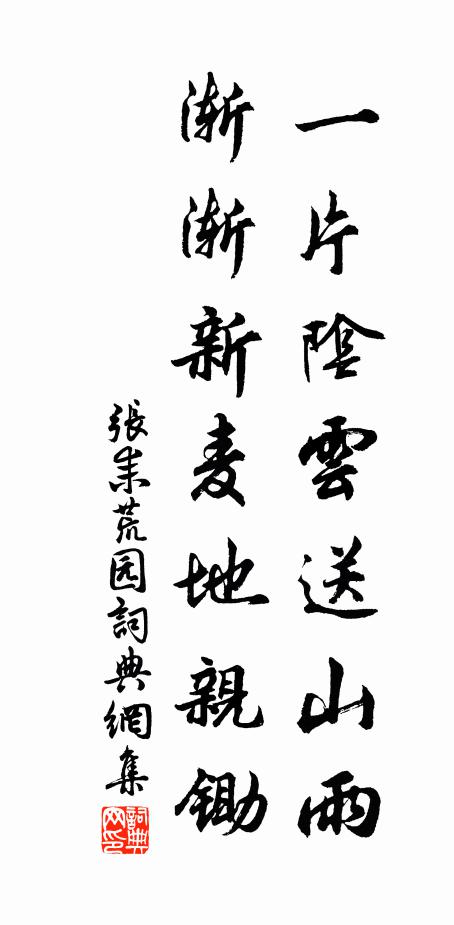 一片陰雲送山雨
渐渐新麦地親鋤
張耒荒园詞典網集
詞典网印